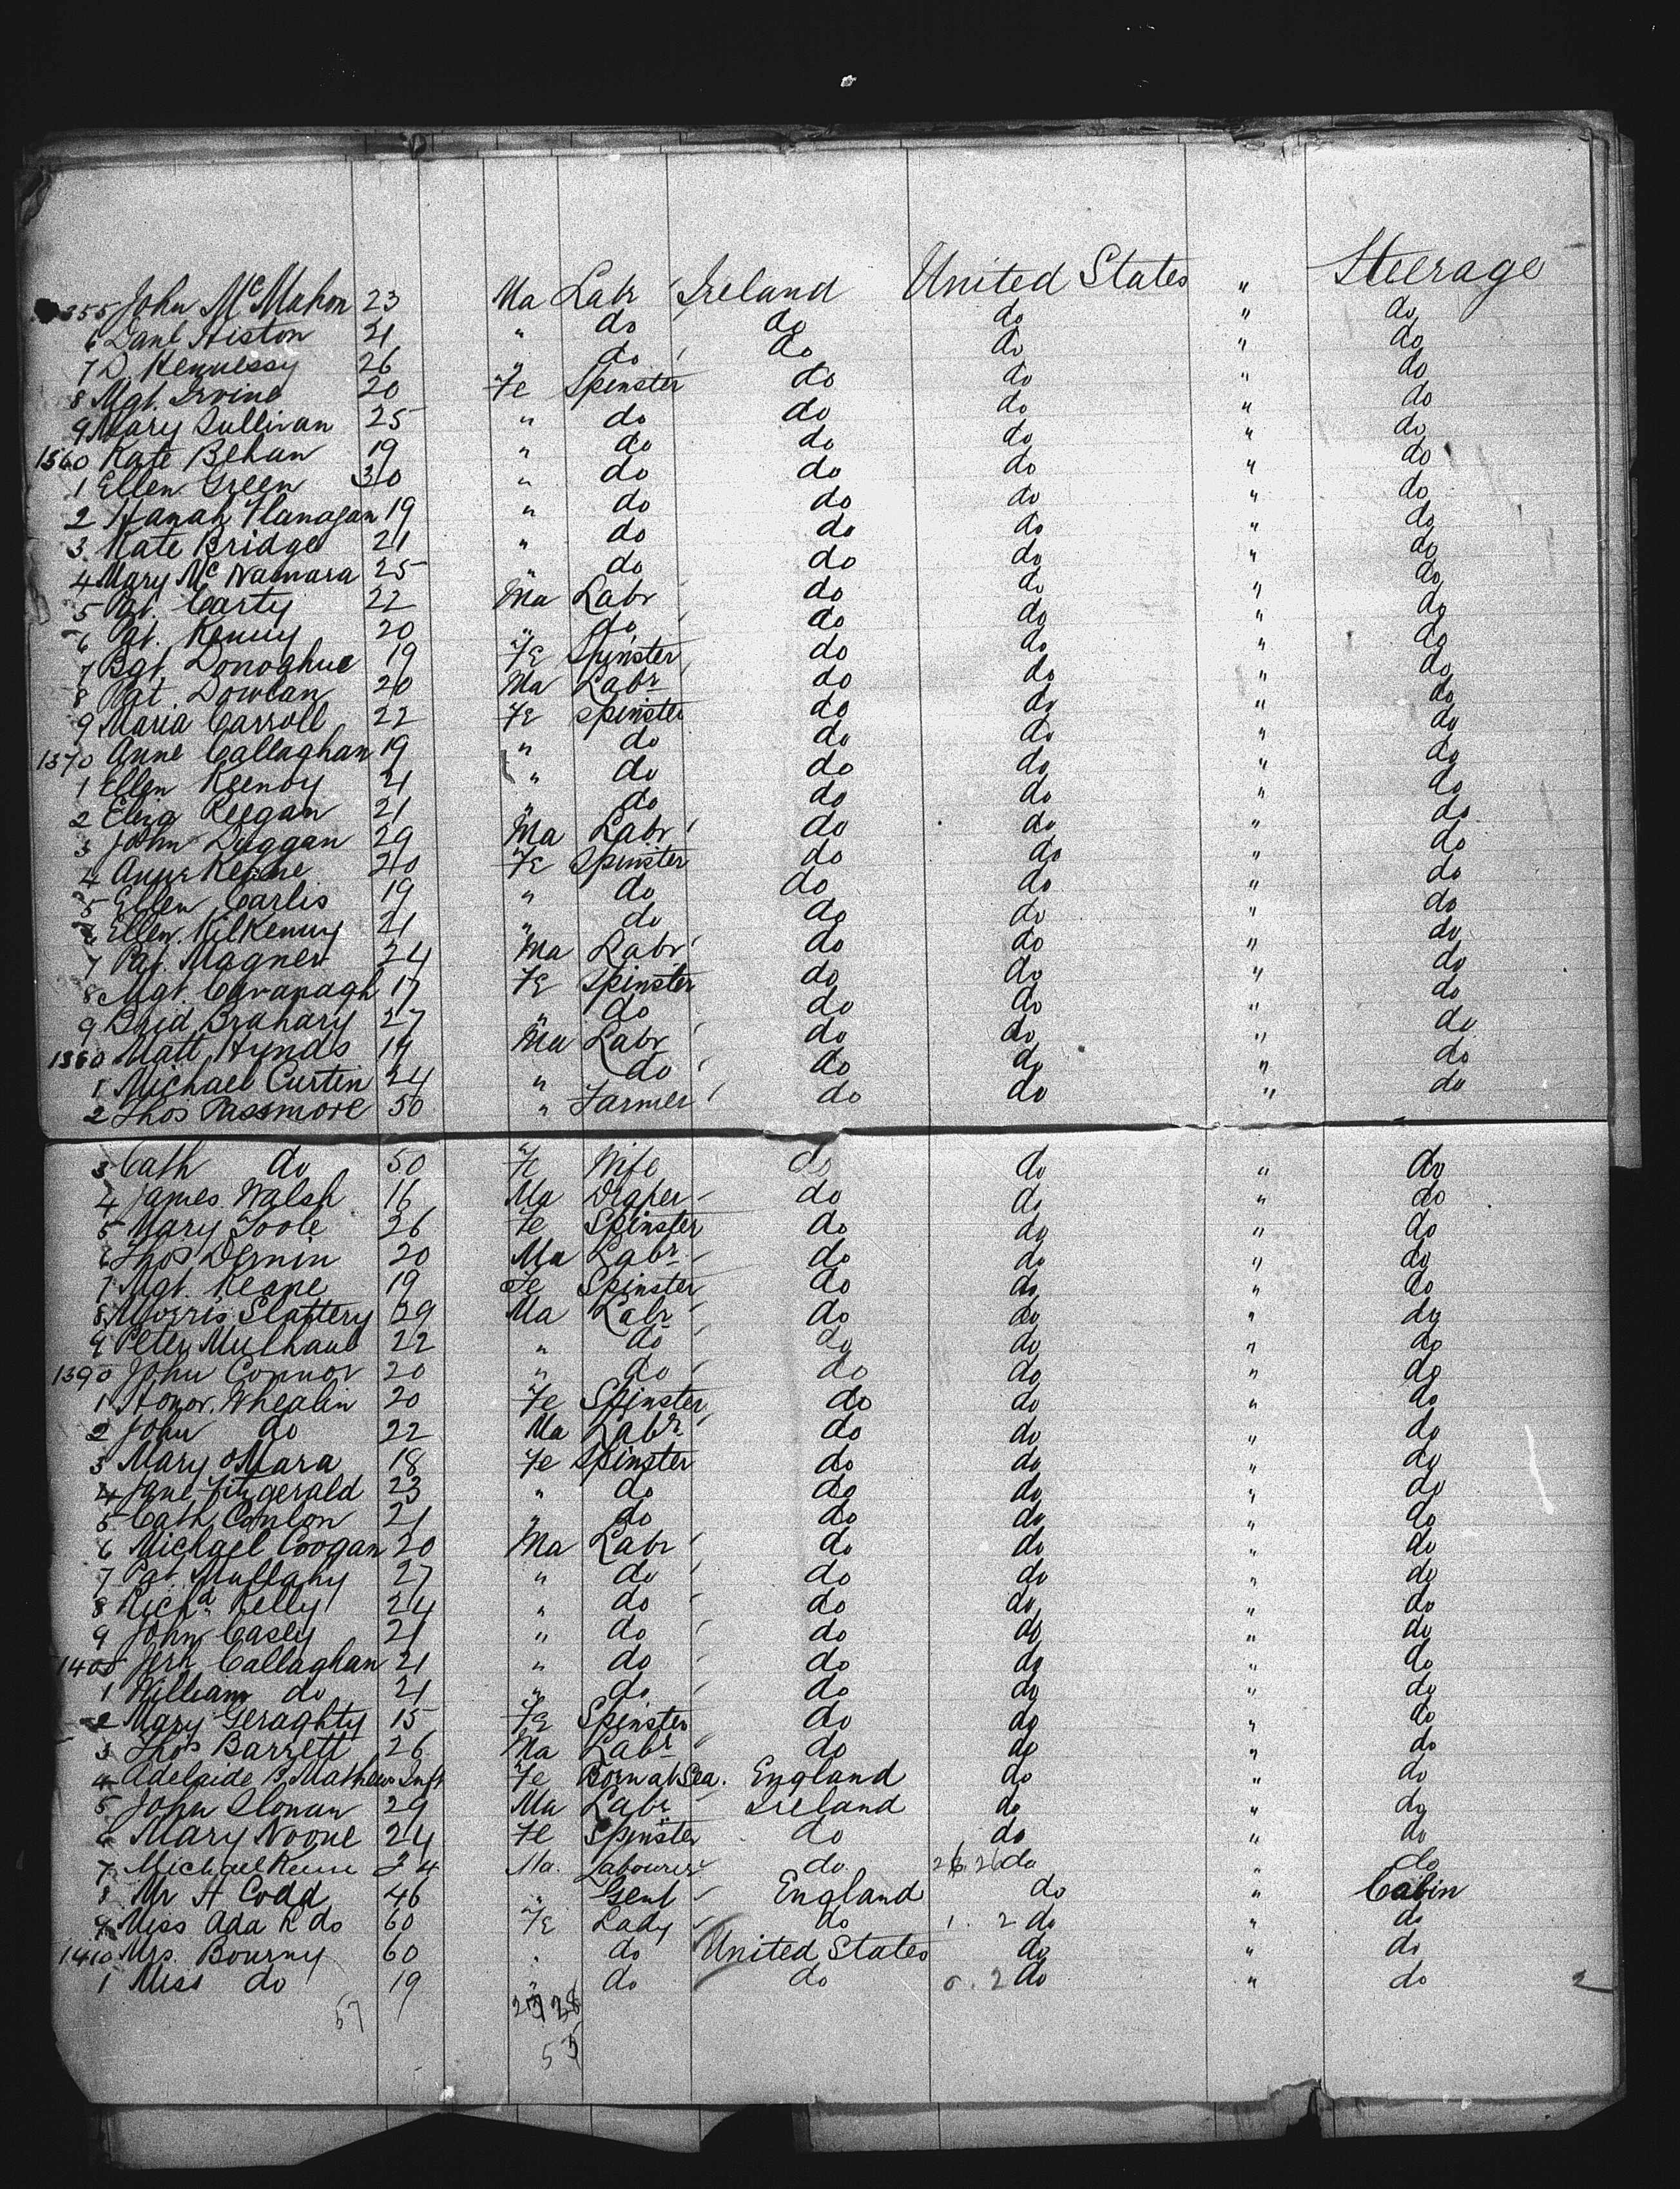 1355 John McMahon 23 Ma Labr Ireland United States " Steerage
6 Danl Histon 21 " do do do " do
7 D. Hennessy 26 " do do do " do
8 Mgt. Irvine 20 Fe Spinster do do " do
9 Mary Sullivan 25 " do do do " do
1360 Kate Behan 19 " do do do " do
1 Ellen Green 30 " do do do " do
2 Hanah Flanagan 19 " do do do " do
3 Kate Bridge 21 " do do do " do
4 Mary McNamara 25 " do do do " do
5 Pat. Carty 22 Ma Labr do do " do
6 Pat. Kenny 20 " do do do " do
7 Bgt. Donoghue 19 Fe Spinster do do " do
8 Pat. Dowlan 20 Ma Labr do do " do
9 Maria Carroll 22 Fe Spinster do do " do
1370 Anne Callaghan 19 " do do do " do
1 Ellen Keenoy 21 " do do do " do
2 Eliza Keegan 21 " do do do " do
3 John Duggan 29 Ma Labr do do " do
4 Anne 20 Fe Spinster do do " do
5 Ellen Carlis 19 " do do do " do
6 Ellen Kilkenny 21 " do do do " do
7 Pat. Magner 24 Ma Labr do do " do
8 Mgt. Cavanagh 17 Fe Spinster do do " do
9 Brid Brahary 27 " do do do " do
1380 Matt Hynds 19 Ma Labr do do " do
1 Michael Curtin 24 " do do do " do
2 Thos Passmore 50 " Farmer do do " do
3 Cath do 50 Fe Wife do do " do
4 James Walsh 16 Ma Draper do do " do
5 Mary Toole 26 Fe Spinster do do " do
6 Thos Dernin 20 Ma Labr do do " do
7 Mgt. Keane 19 Fe Spinster do do " do
8 Morris Slattery 39 Ma Labr do do " do
9 Peter Mulhaul 22 " do do do " do
1390 John Connor 20 " do do do " do
1 Honor. Whealin 20 Fe Spinster do do " do
2 John do 22 Ma Labr do do " do
3 Mary oMara 18 Fe Spinster do do " do
4 Jane Fitzgerald 23 " do do do " do
5 Cath Conlon 21 " do do do " do
6 Michael Coogan 20 Ma Labr do do " do
7 Pat Mullahy 27 " do do do " do
8 Richd Kelly 24 " do do do " do
9 John Casey 21 " do do do " do
1400 Jerh Callaghan 21 " do do do " do
1 William do 21 " do do do " do
2 Mary Geraghty 15 Fe Spinster do do " do
3 Thos Barrett 26 Ma Labr do do " do
4 Adelaide B. Mathews Inft Fe Born at Sea. England do " do
5 John Slonan 29 Ma Labr Ireland do " do
6 Mary Noone 24 Fe Spinster do do " do
7 Michael 24 Ma. Labourer do 26 26 do " do
8 Mr H Codd 46 " Gent England do " Cabin
9 Miss Ada R do 60 Fe Lady do 1. 2 do " do
1410 Mrs. Bourny 60 " do United States do " do
1 Miss do 19 " do do 0. 2 do " do 2
57 27 28
55